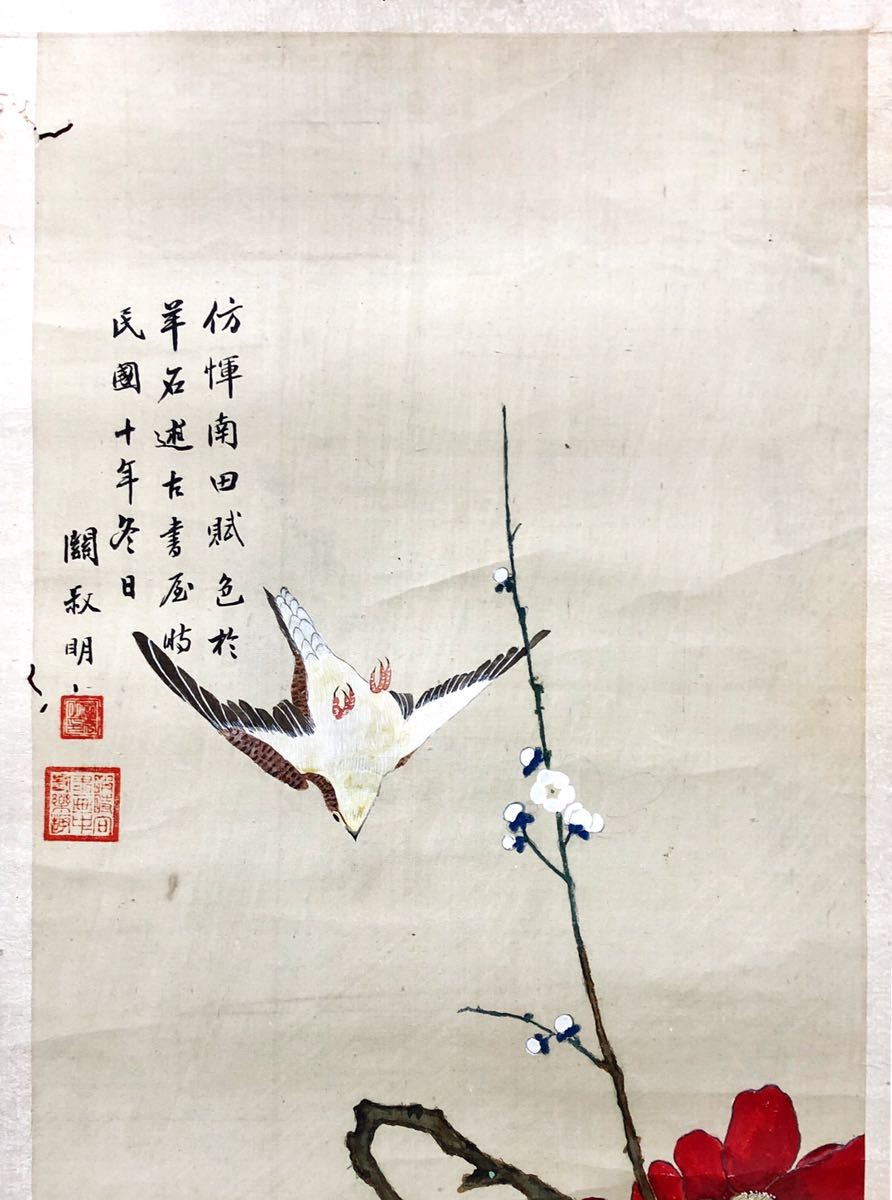 仿惲南田賦色於
羊石述古書屋時
民國十年冬日
關叔明